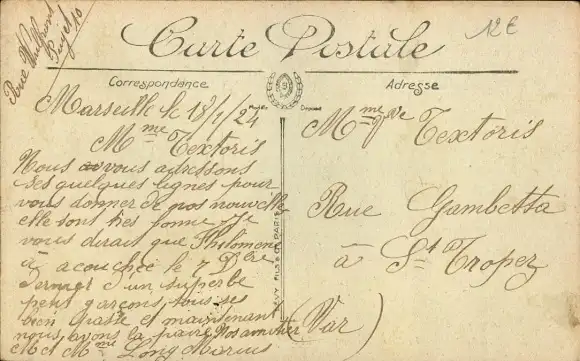 Rue Puget 10
12 €
Carte Postale
Correspondance
Adresse
Marseille le 18/1/24
Mme Textoris
Nous vous adressons
ses quelques lignes pour
vous donner de nos nouvelle
elle sont tres bonne Je
vous dirait que Philomene
à acouchée le 7 Dbre
dernier d'un superbe
petit garçon, tous se
bien passé et maintenant
nous avons la paire Nos amitier
M et Mme Long Marius
Mme Vve Textoris
Rue Gambetta
à St Tropez
(Var)
LEVY FILS & Cie PARIS